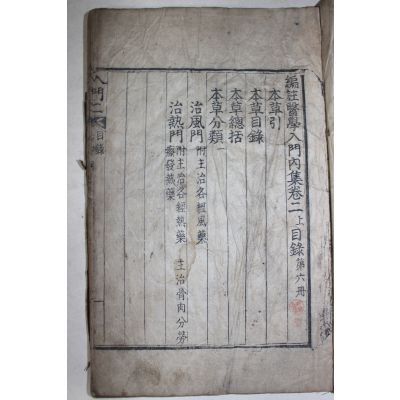 編註醫學入門內集卷二上目錄 第六冊
本草引
本草目錄
本草總括
本草分類
治風門 附主治各經風藥
治熱門 附主治各經熱藥 主治骨肉分勞
瘡發熱藥
入門二 目錄